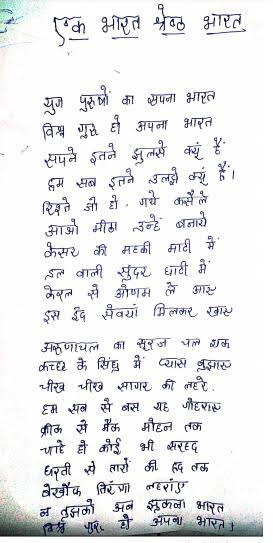 एक भारत श्रेष्ठ भारत
युग पुरुषों का सपना भारत
विश्व गुरु हो अपना भारत
सपने इतने झुलसे क्यूं हैं
हम सब इतने उलझे क्यूं हैं।
रिश्ते जो हो गये कसैले
आओ मीठा उन्हें बनाये
केसर की महकी माटी में
डल वाली सुंदर घाटी में
केरल से ओणम ले आए
इस ईद सेंवया मिलकर खाए
अरुणाचल का सूरज चल थक
कच्छ के सिंधु में प्यास बुझाए
चीख चीख सागर की लहरें
हम सब से बस यह गोहराए
क्रीक से मैक मोहन तक
चाहे हो कोई भी सरहद
धरती से तारों की हद तक
बेखौफ तिरंगा लहराए
न तुझको अब झुकना भारत
विश्व गुरु हो अपना भारत।